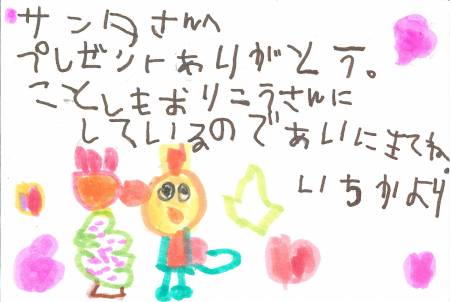 サンタさんへ
プレゼントありがとう。
ことしもおりこうさんに
しているのであいにきてね。
いちかより